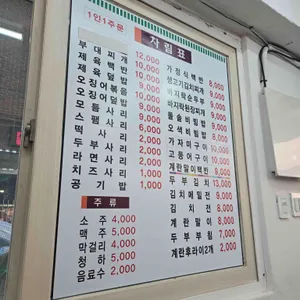 1인1주문
차림표
부대찌개 12,000
제육백반 10,000
제육덮밥 10,000
오징어볶음 10,000
오징어덮밥 9,000
모듬사리 9,000
스팸사리 6,000
떡사리 2,000
두부사리 2,000
라면사리 2,000
치즈사리 1,000
공기밥 1,000
가정식백반 8,000
생고기김치찌개 9,000
바지락순두부 9,000
바지락된장찌개 9,000
돌솥비빔밥 9,000
오색비빔밥 8,000
가자미구이 9,000
고등어구이 9,000
계란말이백반 9,000
두부김치 13,000
김치메밀전 9,000
김치전 8,000
계란말이 8,000
두부부침 7,000
계란후라이2개 2,000
주류
소주 4,000
맥주 5,000
막걸리 4,000
청하 5,000
음료수 2,000